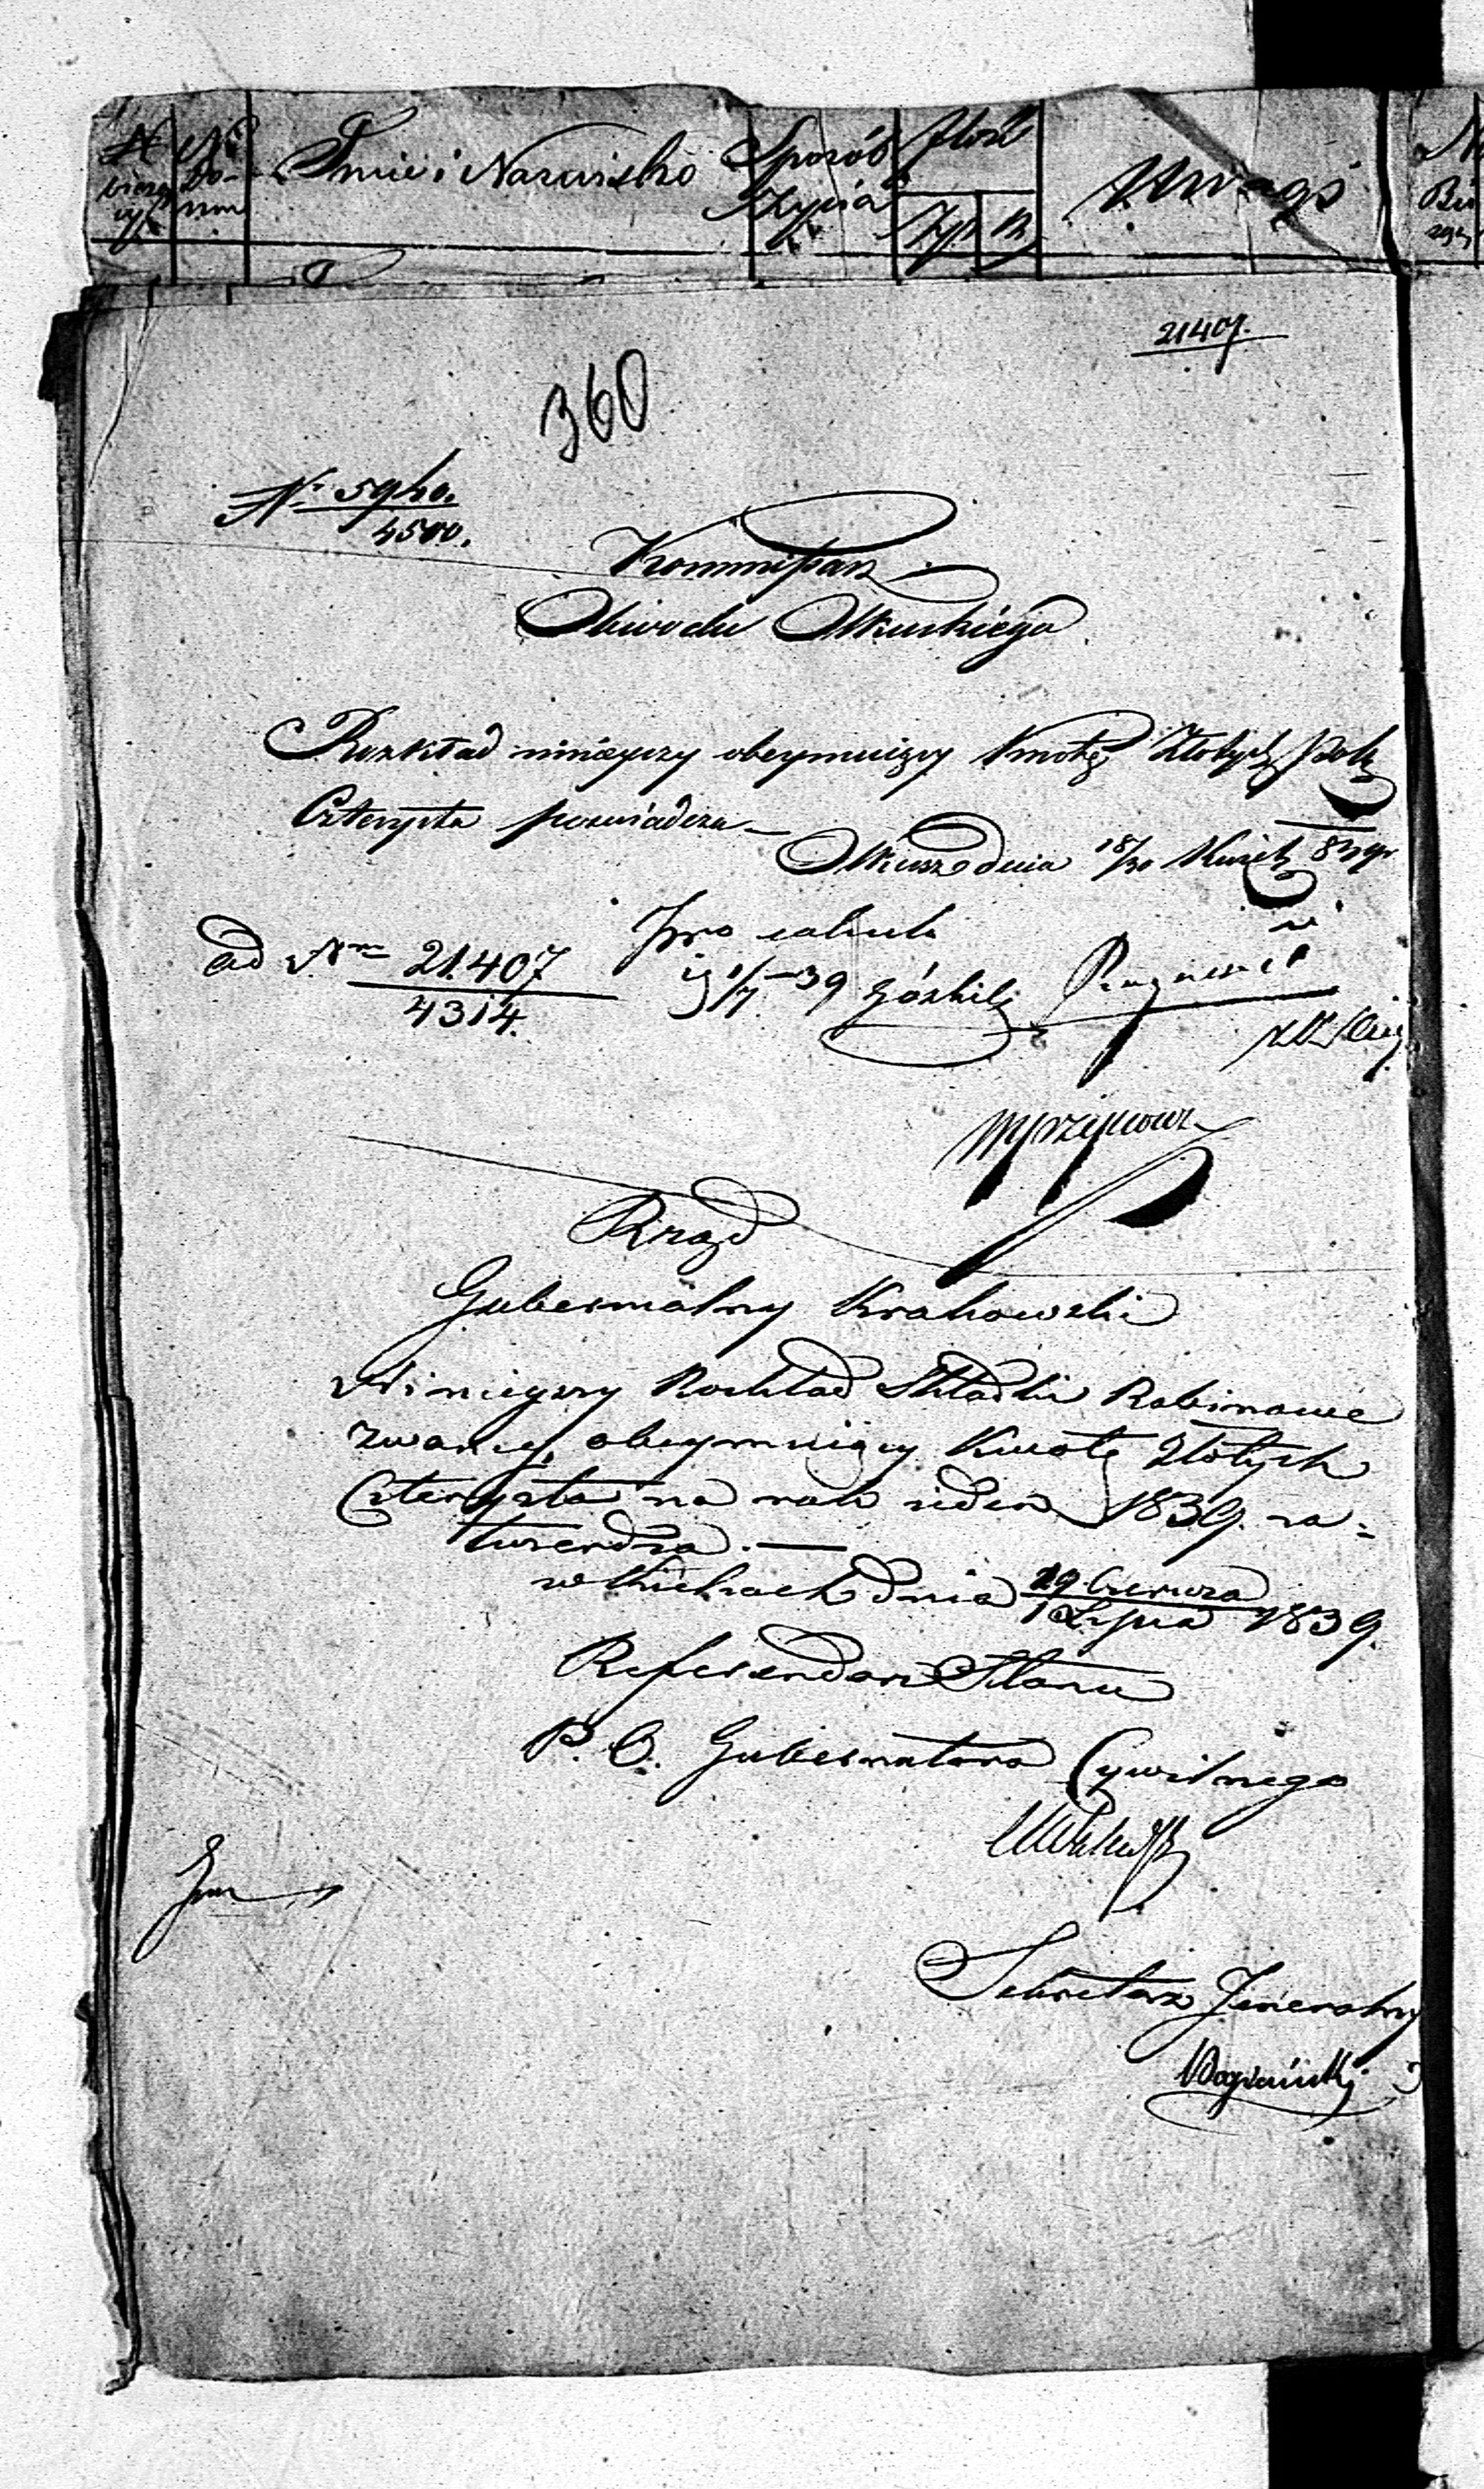 N
bieżą
cy
No
Do-
mu
Imie i Nazwisko
Sposób
Życia
Ilość
Złp
Uwagi
21407.
360
No 5940.
4500.
Kommissarz
Obwodu Olkuskiego
Rozkład ninieyszy obeymuiący Kwotę Złotych Pols
Czterysta poswiadcza
Olkusz dnia 18/30 Kwiet 839 r
ad Nrm 21.407
4314.
Pro calculo
1/7 39 Górski
Rząd
Gubernialny Krakowski
Ninieyszy Rozkład Składki Rabinowe
zwaney, obeymuiący Kwotę Złotych
Czterysta na rok ieden 1839. za=
twierdza. —
w Kielcach dnia 19 Czerwca
1 Lipca 1839.
Referendarz Stanu
P. O. Gubernatora Cywilnego
Sekretarz Jeneralny